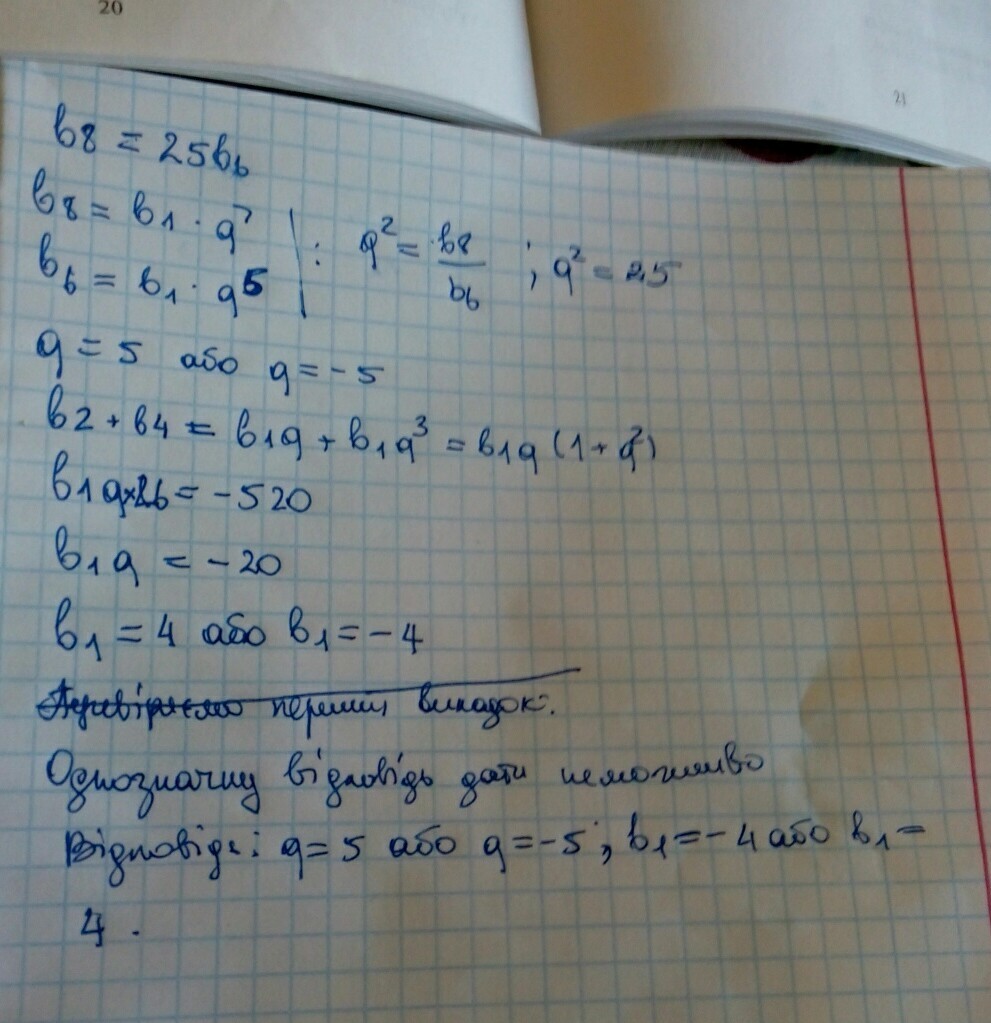 20
21
b8 = 25b6
b8 = b1 · q⁷
b6 = b1 · q⁵ | : q² = b8/b6 ; q² = 25
q = 5 або q = -5
b2 + b4 = b1q + b1q³ = b1q (1 + q²)
b1q×26 = -520
b1q = -20
b1 = 4 або b1 = -4
Перевіряємо перший випадок:
Однозначну відповідь дати неможливо
Відповідь: q = 5 або q = -5 ; b1 = -4 або b1 =
4 .